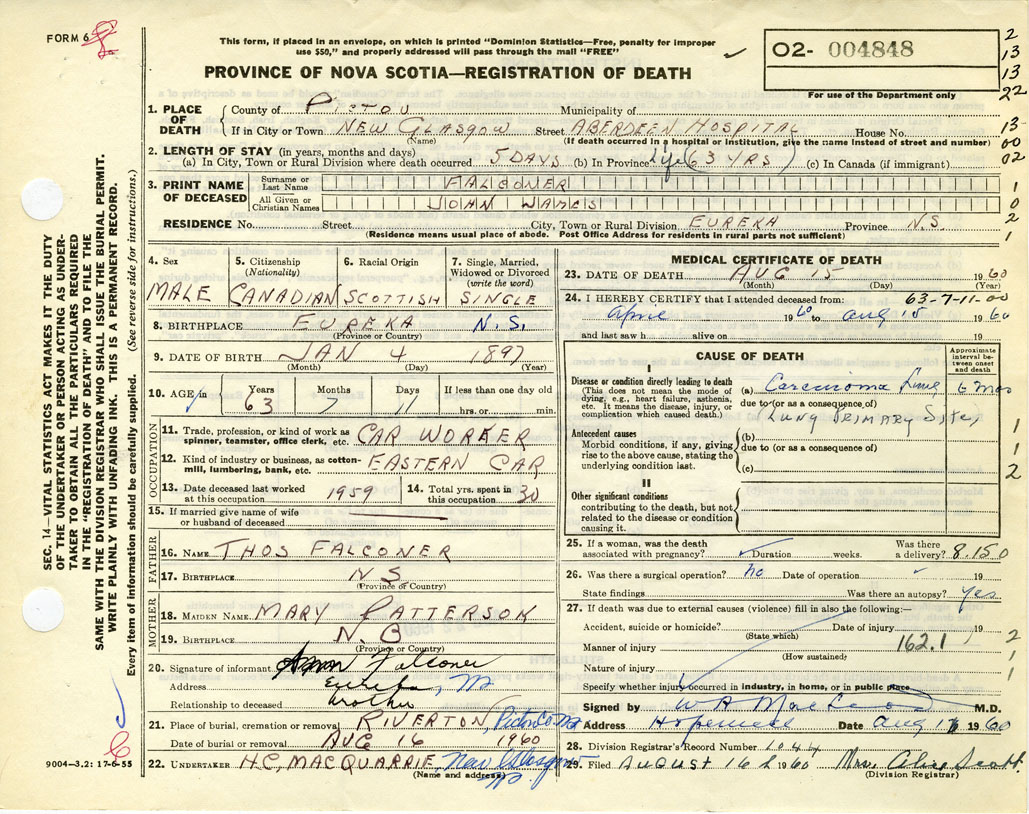 FORM 6
This form, if placed in an envelope, on which is printed "Dominion Statistics—Free, penalty for improper
use $50," and properly addressed will pass through the mail "FREE"
PROVINCE OF NOVA SCOTIA—REGISTRATION OF DEATH
02- 004848
For use of the Department only
2
13
13
22
1. PLACE OF DEATH
County of PICTOU Municipality of
If in City or Town NEW GLASGOW Street ABERDEEN HOSPITAL House No.
(Name) (If death occurred in a hospital or institution, give the name instead of street and number)
13
00
02
2. LENGTH OF STAY (in years, months and days)
(a) In City, Town or Rural Division where death occurred 5 DAYS (b) In Province Life (63 YRS) (c) In Canada (if immigrant)
3. PRINT NAME OF DECEASED
Surname or Last Name FALCONER
All Given or Christian Names JOHN JAMES
1
0
2
1
RESIDENCE No. Street City, Town or Rural Division EUREKA Province N.S.
(Residence means usual place of abode. Post Office Address for residents in rural parts not sufficient)
SEC. 14—VITAL STATISTICS ACT MAKES IT THE DUTY
OF THE UNDERTAKER OR PERSON ACTING AS UNDER-
TAKER TO OBTAIN ALL THE PARTICULARS REQUIRED
IN THE "REGISTRATION OF DEATH" AND TO FILE THE
SAME WITH THE DIVISION REGISTRAR WHO SHALL ISSUE THE BURIAL PERMIT.
WRITE PLAINLY WITH UNFADING INK. THIS IS A PERMANENT RECORD.
Every item of information should be carefully supplied. (See reverse side for instructions.)
4. Sex
MALE
5. Citizenship
(Nationality)
CANADIAN
6. Racial Origin
SCOTTISH
7. Single, Married,
Widowed or Divorced
(write the word)
SINGLE
8. BIRTHPLACE EUREKA N.S.
(Province or Country)
9. DATE OF BIRTH JAN 4 1897
(Month) (Day) (Year)
10. AGE
Years 63
Months 7
Days 11
If less than one day old
hrs. or min.
OCCUPATION
11. Trade, profession, or kind of work as
spinner, teamster, office clerk, etc. CAR WORKER
12. Kind of industry or business, as cotton-
mill, lumbering, bank, etc. EASTERN CAR
13. Date deceased last worked
at this occupation 1959
14. Total yrs. spent in
this occupation 30
15. If married give name of wife
or husband of deceased
FATHER
16. NAME THOS FALCONER
17. BIRTHPLACE N S
(Province or Country)
MOTHER
18. MAIDEN NAME MARY PATTERSON
19. BIRTHPLACE N. B
(Province or Country)
20. Signature of informant Falconer
Address Eureka, NS
Relationship to deceased brother
21. Place of burial, cremation or removal RIVERTON, Pictou Co. NS
Date of burial or removal AUG 16 1960
22. UNDERTAKER H.C. MACQUARRIE, New Glasgow
(Name and address) NS
9004—3.2: 17-6-55
MEDICAL CERTIFICATE OF DEATH
23. DATE OF DEATH AUG 15 1960
(Month) (Day) (Year)
24. I HEREBY CERTIFY that I attended deceased from: 63-7-11-00
April 1960 to aug 15 1960
and last saw h alive on 19
CAUSE OF DEATH
Approximate
interval between
onset
and death
I
Disease or condition directly leading to death
(This does not mean the mode of
dying, e.g., heart failure, asthenia,
etc. It means the disease, injury, or
complication which caused death.)
(a) Carcinoma Lung 6 mos
due to (or as a consequence of)
LUNG PRIMARY SITE
Antecedent causes
Morbid conditions, if any, giving
rise to the above cause, stating the
underlying condition last.
(b)
due to (or as a consequence of)
(c)
1
1
2
II
Other significant conditions
contributing to the death, but not
related to the disease or condition
causing it.
25. If a woman, was the death
associated with pregnancy? Duration weeks. Was there
a delivery? 8.150
26. Was there a surgical operation? no Date of operation 19
State findings Was there an autopsy? yes
27. If death was due to external causes (violence) fill in also the following:—
Accident, suicide or homicide? Date of injury 19
(State which)
Manner of injury 162.1
(How sustained)
Nature of injury
2
1
1
Specify whether injury occurred in industry, in home, or in public place
Signed by W A MacLeod M.D.
Address Hopewell Date aug 1960
28. Division Registrar's Record Number 1044
29. Filed AUGUST 16 1960 Mrs. Alice Scott.
(Division Registrar)